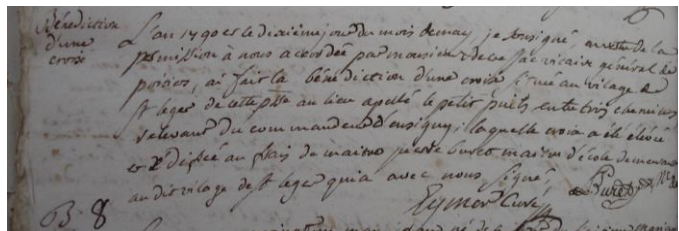 Bénédiction
d'une
croix
L'an 1790 et le dixième jour du mois de may, je soussigné, en vertu de la
permission à nous accordée par monsieur vicaire général de
poitiers, ai fait la bénédiction d'une croix située au village de
st leger de cette psse au lieu apellé le petit puits entre trois chemins
relevant du commandeur d'ensigny, laquelle croix a été élevée
et au frais de maitre pierre Buret maitre d'école demeurant
au dit vilage de st leger qui a avec nous signé,
Buret
Eymer Curé
B 8